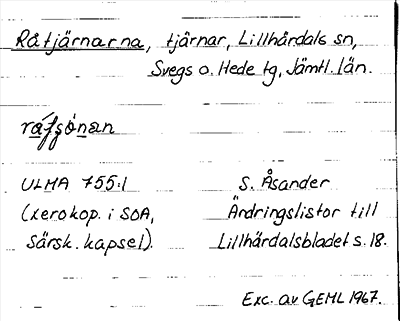 Råtjärnarna, tjärnar, Lillhärdals sn,
Svegs o. Hede tg, Jämtl. län.
ULMA 755:1
(xerokop. i SOA,
särsk. kapsel).
S. Åsander
Ändringslistor till
Lillhärdalsbladet s. 18.
Exc. av GEML 1967.